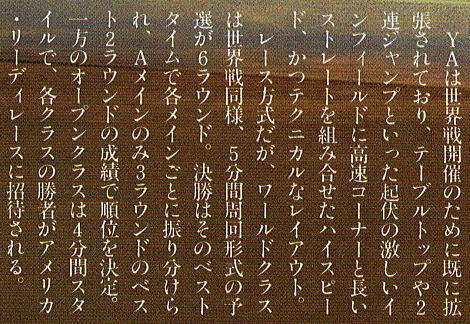 YAは世界戦開催のために既に拡
張されており、テーブルトップや2
連ジャンプといった起伏の激しいイ
ンフィールドに高速コーナーと長い
ストレートを組み合せたハイスピー
ド、かつテクニカルなレイアウト。
レース方式だが、ワールドクラス
は世界戦同様、5分間周回形式の予
選が6ラウンド。決勝はそのベスト
タイムで各メインごとに振り分けら
れ、Aメインのみ3ラウンドのベス
ト2ラウンドの成績で順位を決定。
一方のオープンクラスは4分間スタ
イルで、各クラスの勝者がアメリカ
・リーディレースに招待される。